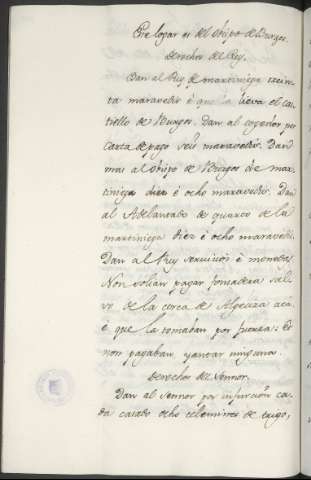 Este logar es del Obispo de Burgos.
Derechos del Rey.
Dan al Rey de martiniega trein-
ta maravedis é que la lieva el cas-
tiello de Burgos. Dan al cogedor por
carta de pago seis maravedis. Dan
mas al Obispo de Burgos de mar-
tiniega diez é ocho maravedis. Dan
al Adelantado de quarto de la
martiniega diez é ocho maravedis.
Dan al Rey servicios é monedas.
Non solian pagar fonsadera sal-
vo de la cerca de Algecira acá
é que la tomaban por fuerza: Et
non pagaban yantar ninguno.
Derechos del Sennor.
Dan al Sennor por infurcion ca-
da casado ocho celemines de trigo,